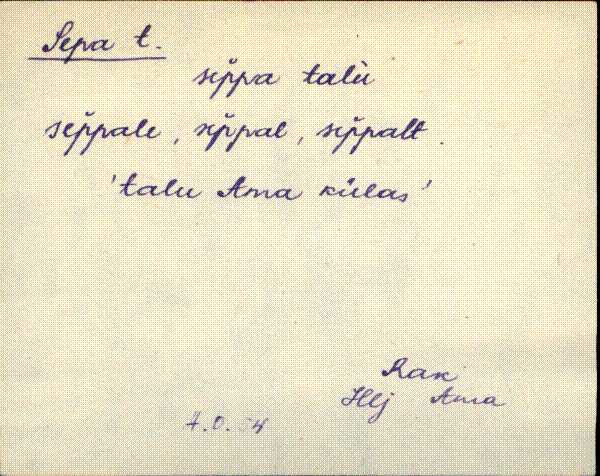 Sepa t.
sep̆pa talù
sep̆pale, sep̆pal, sep̆palt.
'talu Ama külas'
Rak
Hlj Ama